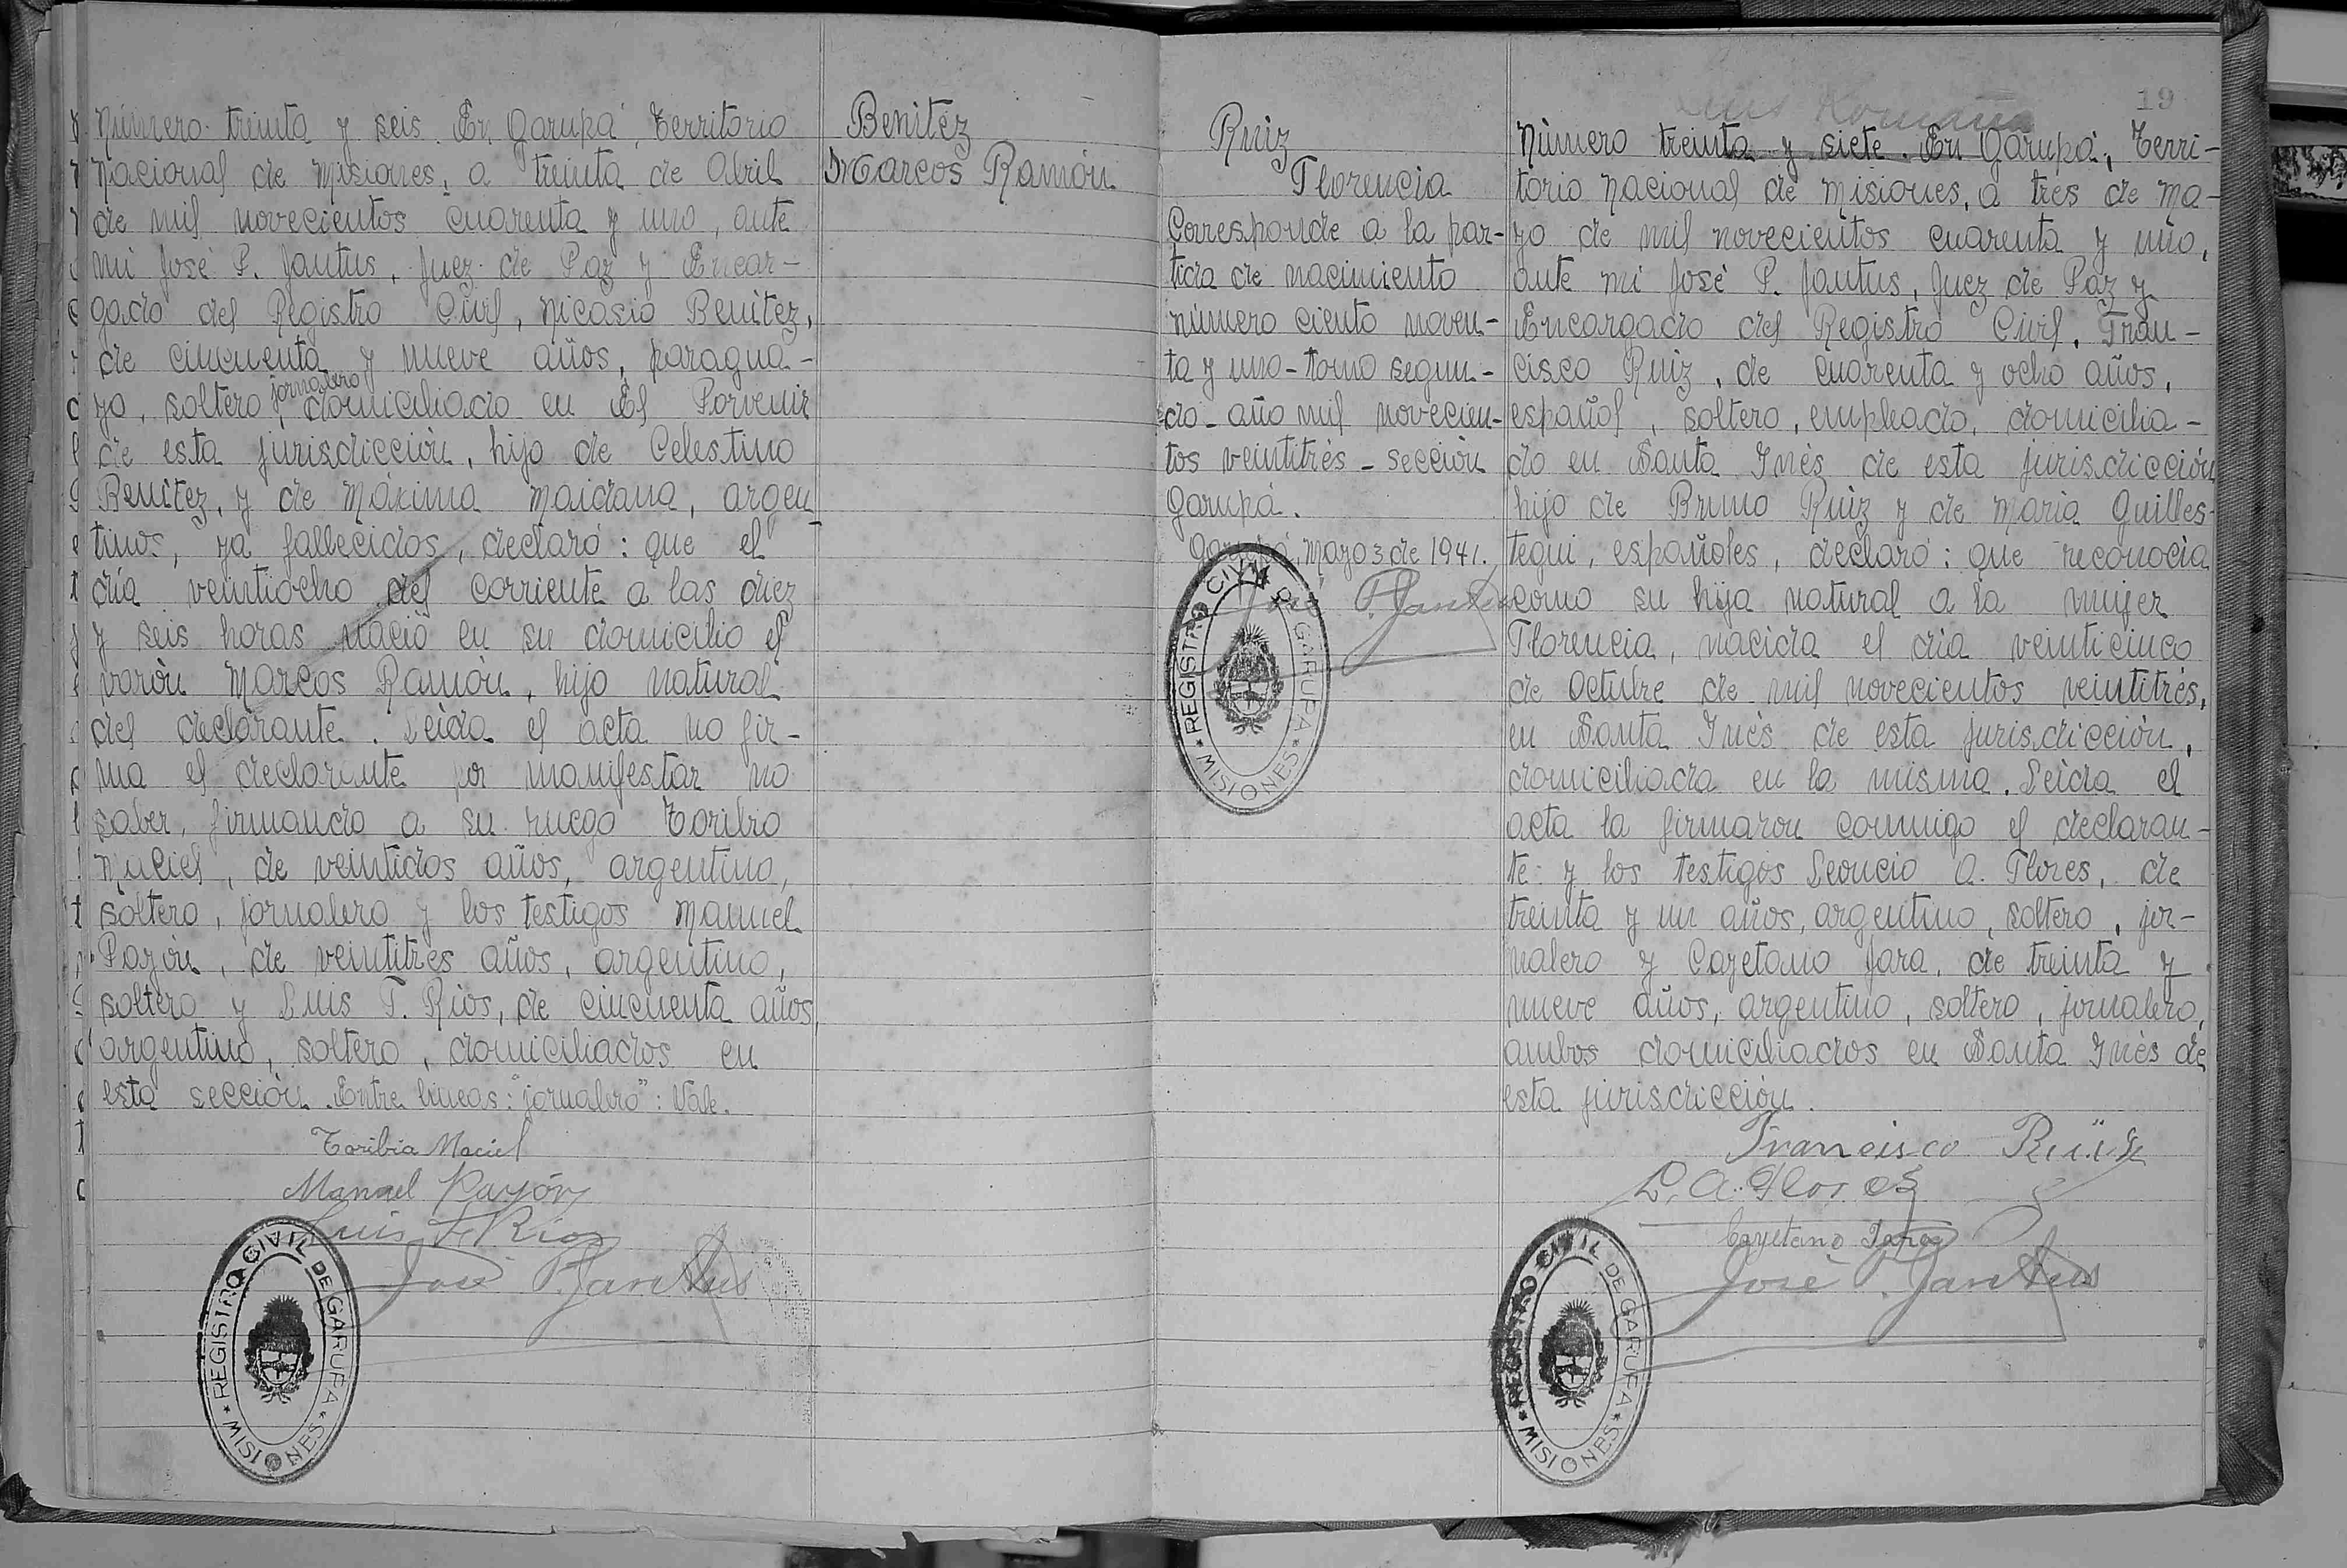 Número treinta y seis. En Garupá, Territorio
Nacional de Misiones, a treinta de Abril
de mil novecientos cuarenta y uno, ante
mi José P. Jantus, Juez de Paz y Encar-
gado del Registro Civil, Nicasio Benítez,
de cincuenta y nueve años, paragua-
yo, soltero, jornalero domiciliado en El Porvenir
de esta jurisdicción, hijo de Celestino
Benítez, y de Máxima Maidana, argen-
tinos, ya fallecidos, declaró: que el
día veintiocho del corriente a las diez
y seis horas nació en su domicilio el
varón Marcos Ramón, hijo natural
del declarante. Leída el acta no fir-
ma el declarante por manifestar no
saber, firmando a su ruego Toribio
Maciel, de veintidos años, argentino,
soltero, jornalero y los testigos Manuel
Payón, de veintitrés años, argentino,
soltero y Luis F. Ríos, de cincuenta años,
argentino, soltero, domiciliados en
esta sección. Entre líneas: "jornalero": Vale.
Toribio Maciel
Manuel Payón
Luis F. Ríos
José P. Jantus
REGISTRO CIVIL DE GARUPA
* MISIONES *
Benítez
Marcos Ramón
Ruiz
Florencia
Corresponde a la par-
tida de nacimiento
número ciento noven-
ta y uno - tomo segun-
do - año mil novecien-
tos veintitrés - sección
Garupá.
Garupá, Mayo 3 de 1941.
José P. Jantus
REGISTRO CIVIL DE GARUPA
* MISIONES *
19
Número treinta y siete. En Garupá, Terri-
torio Nacional de Misiones, a tres de Ma-
yo de mil novecientos cuarenta y uno,
ante mi José P. Jantus, Juez de Paz y
Encargado del Registro Civil, Fran-
cisco Ruiz, de cuarenta y ocho años,
español, soltero, empleado, domicilia-
do en Santa Inés de esta jurisdicción
hijo de Bruno Ruiz y de María Guilles-
tegui, españoles, declaró: que reconocía
como su hija natural a la mujer
Florencia, nacida el día veinticinco
de Octubre de mil novecientos veintitrés,
en Santa Inés de esta jurisdicción,
domiciliada en la misma. Leída el
acta la firmaron conmigo el declaran-
te y los testigos Leoncio A. Flores, de
treinta y un años, argentino, soltero, jor-
nalero y Cayetano Jara, de treinta y
nueve años, argentino, soltero, jornalero,
ambos domiciliados en Santa Inés de
esta jurisdicción.
Francisco Rüiz
L. A. Flores
Cayetano Jara
José P. Jantus
REGISTRO CIVIL DE GARUPA
* MISIONES *